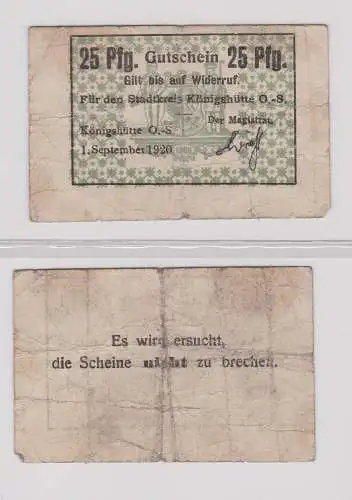 25 Pfg. Gutschein 25 Pfg.
Gilt bis auf Widerruf.
Für den Stadtkreis Königshütte O.-S.
Der Magistrat
Königshütte O.-S.
1. September 1920
Es wird ersucht,
die Scheine nicht zu brechen.